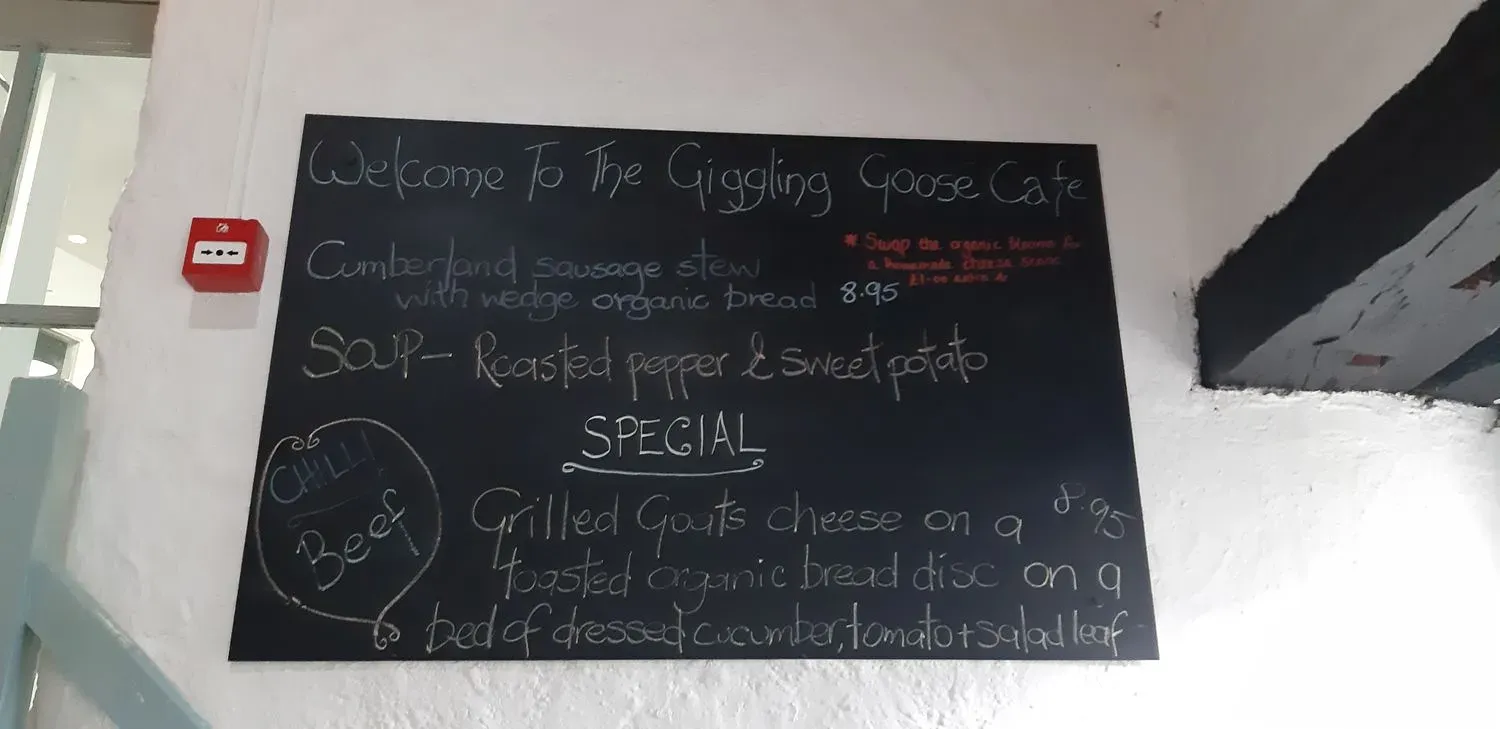 Welcome To The Giggling Goose Cafe
* Swap the organic
a homemade cheese scone
£1.00 extra
Cumberland sausage stew
with wedge organic bread 8.95
SOUP - Roasted pepper & sweet potato
SPECIAL
CHILLI
Beef
Grilled Goats cheese on a 8.95
toasted organic bread disc on a
bed of dressed cucumber, tomato + salad leaf